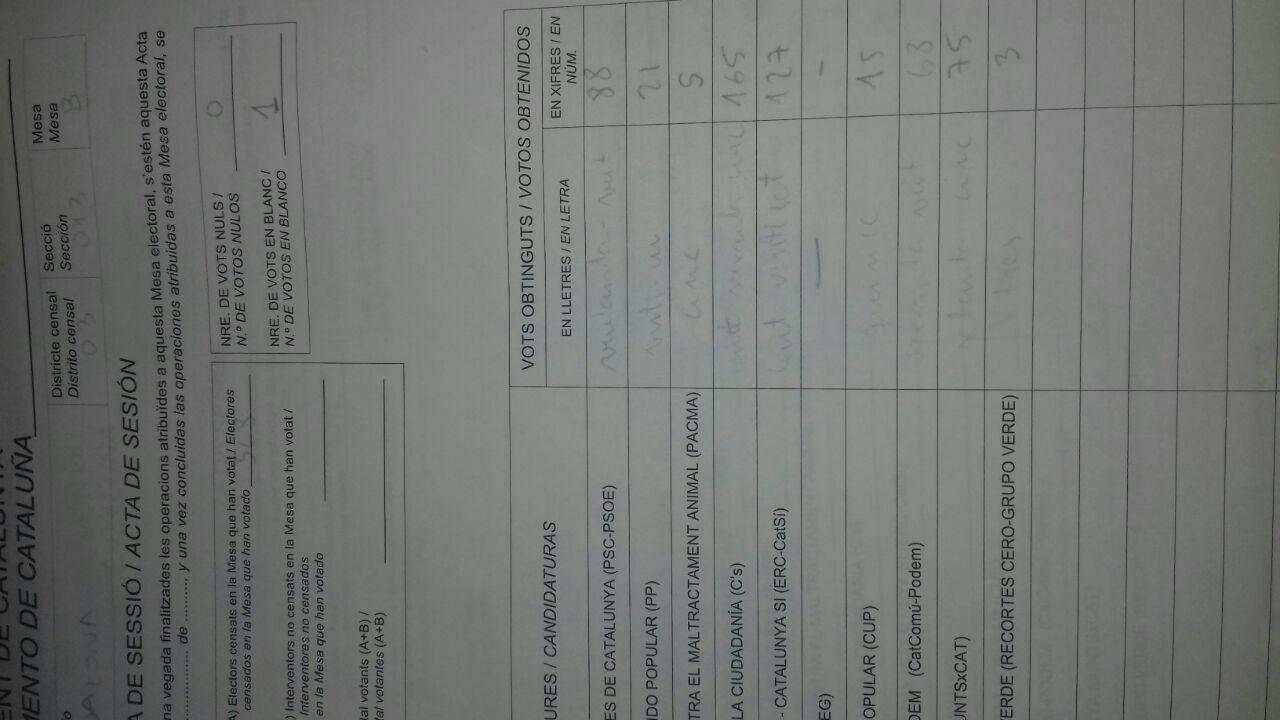 MENTO DE CATALUÑA
Districte censal Secció Mesa
Distrito censal Sección Mesa
03 013 B
DE SESSIÓ / ACTA DE SESIÓN
na vegada finalitzades les operacions atribuïdes a aquesta Mesa electoral, s'estén aquesta Acta
de .......... y una vez concluidas las operaciones atribuidas a esta Mesa electoral, se
A) Electors censats en la Mesa que han votat / Electores
censados en la Mesa que han votado
) Interventors no censats en la Mesa que han votat /
Interventores no censados
en la Mesa que han votado
tal votants (A+B) /
tal votantes (A+B)
NRE. DE VOTS NULS /
N.º DE VOTOS NULOS 0
NRE. DE VOTS EN BLANC /
N.º DE VOTOS EN BLANCO 1
URES / CANDIDATURAS VOTS OBTINGUTS / VOTOS OBTENIDOS
EN LLETRES / EN LETRA EN XIFRES / EN NÚM.
ES DE CATALUNYA (PSC-PSOE) vuitanta-vuit 88
IDO POPULAR (PP) vint-i-u 21
TRA EL MALTRACTAMENT ANIMAL (PACMA) cinc 5
LA CIUDADANÍA (C's) 165
- CATALUNYA SI (ERC-CatSí) cent vint-i-set 127
EG) — -
OPULAR (CUP) quinze 15
DEM (CatComú-Podem) 68
UNTSxCAT) setanta cinc 75
VERDE (RECORTES CERO-GRUPO VERDE) tres 3